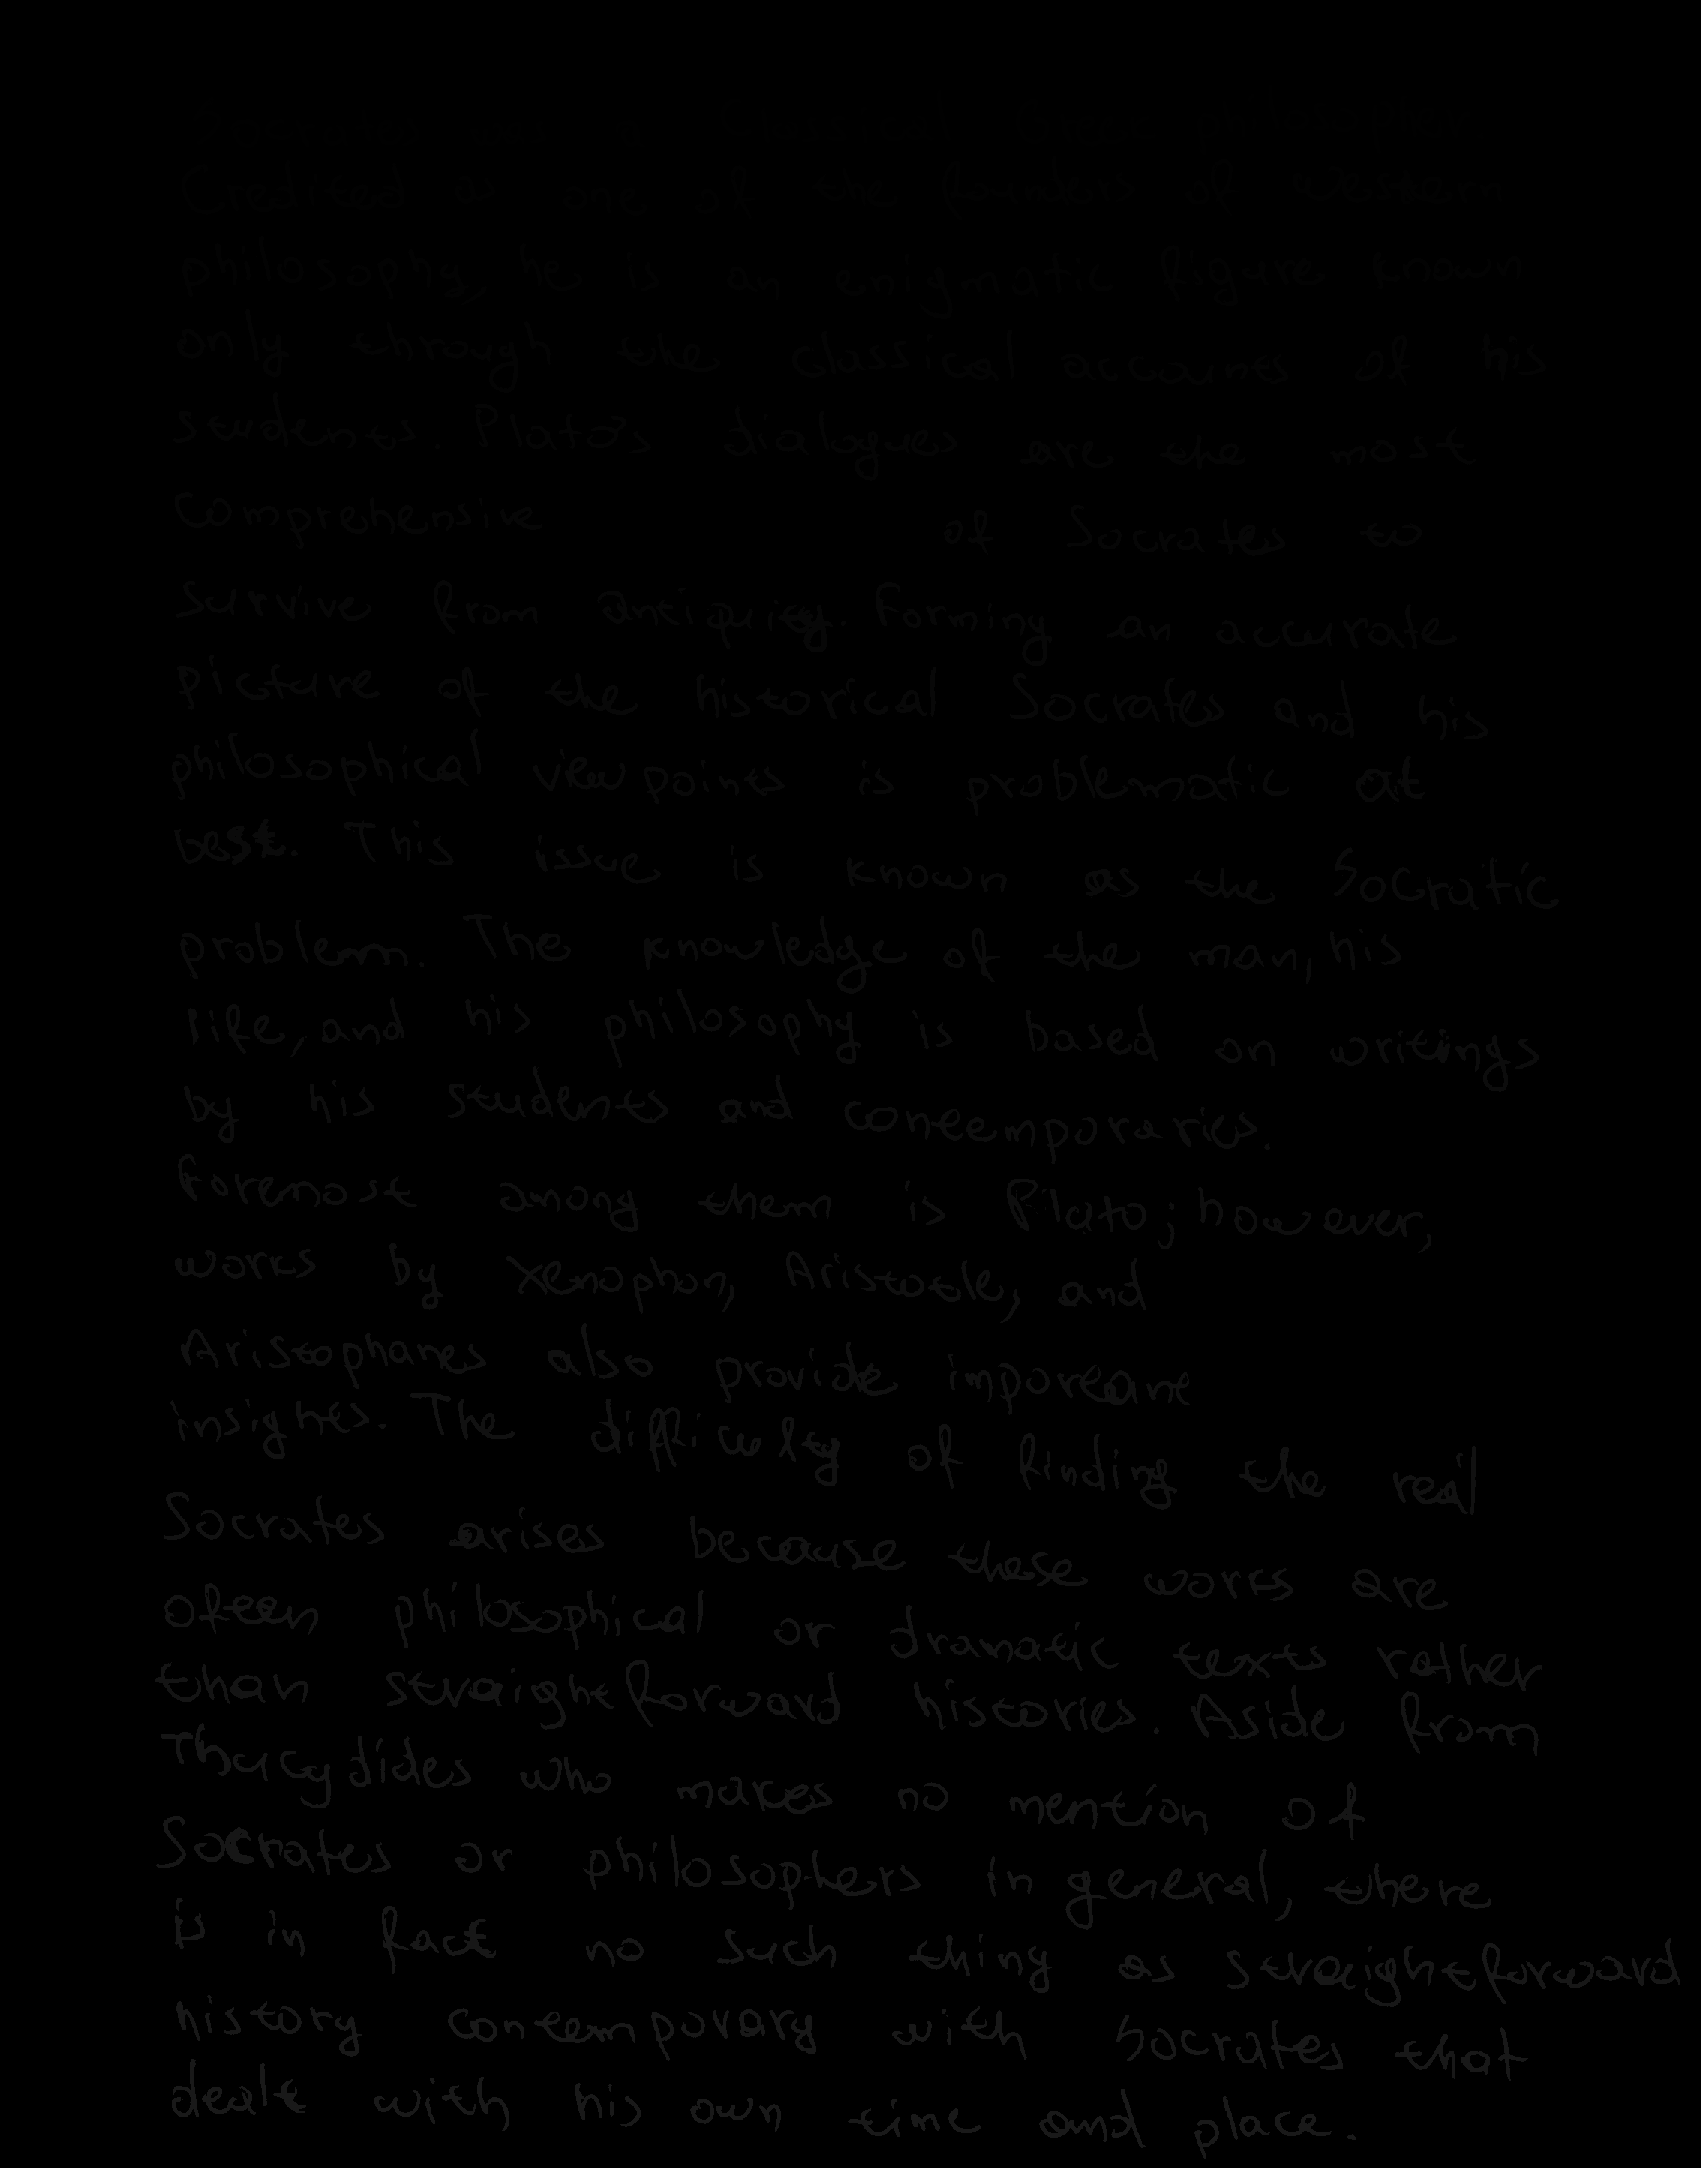 Credited as one of the founders of western
philosophy, he is an enigmatic figure known
only through the classical accounts of his
students. Plato's dialogues are the most
comprehensive of Socrates to
survive from antiquity. Forming an accurate
picture of the historical Socrates and his
philosophical viewpoints is problematic at
best. This issue is known as the Socratic
problem. The knowledge of the man, his
life, and his philosophy is based on writings
by his students and contemporaries.
Foremost among them is Plato; however,
works by Xenophon, Aristotle, and
Aristophanes also provide important
insights. The difficulty of finding the real
Socrates arises because these works are
often philosophical or dramatic texts rather
than straightforward histories. Aside from
Thucydides who makes no mention of
Socrates or philosophers in general, there
is in fact no such thing as straightforward
history contemporary with Socrates that
dealt with his own time and place.